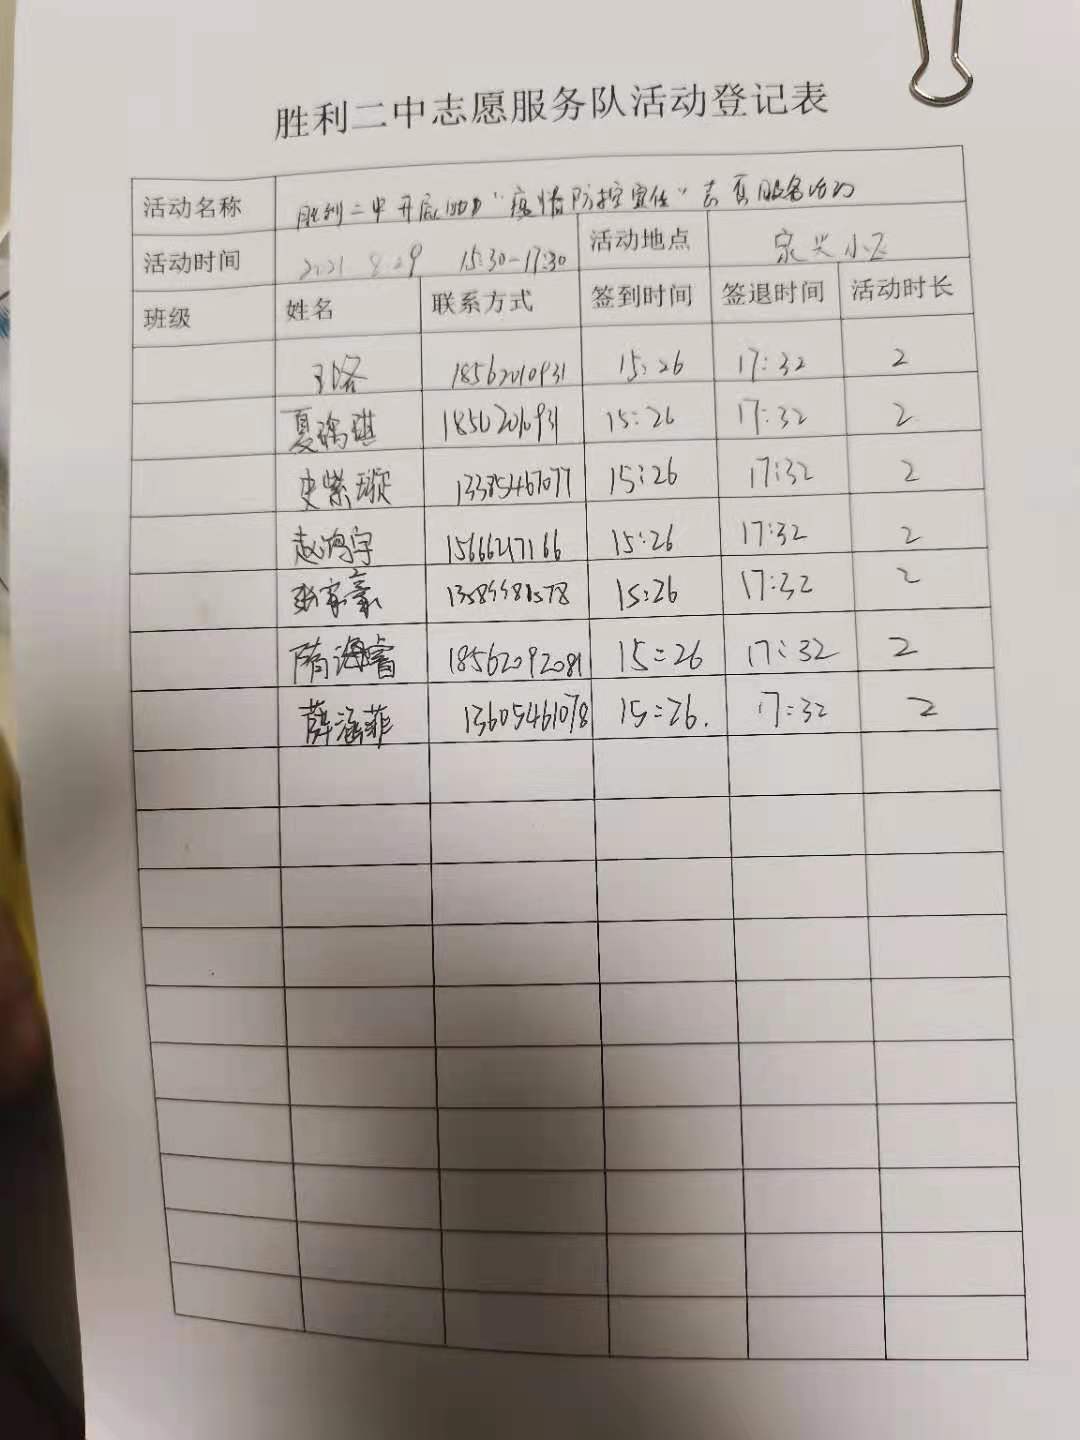 胜利二中志愿服务队活动登记表
活动名称 胜利二中开展 "疫情防控宣传"志愿服务活动
活动时间 2021 8.29 15:30-17:30 活动地点 小区
班级 姓名 联系方式 签到时间 签退时间 活动时长
18562010931 15:26 17:32 2
夏瑞琪 15:26 17:32 2
史紫璇 13385467077 15:26 17:32 2
赵鸿宇 15666217166 15:26 17:32 2
张家豪 15:26 17:32 2
隋海睿 18562092081 15:26 17:32 2
薛涵菲 13605461078 15:26. 17:32 2